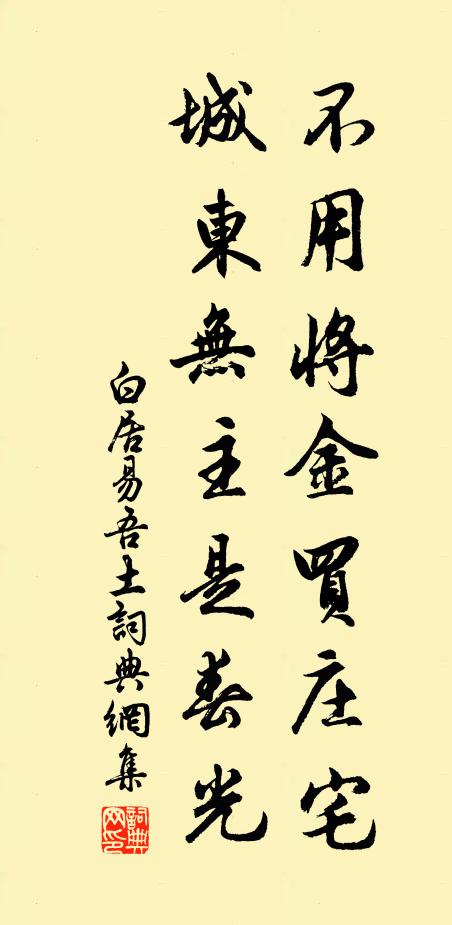 不用將金買庄宅
城東無主是春光
白居易吾土詞典網集
詞典
网印